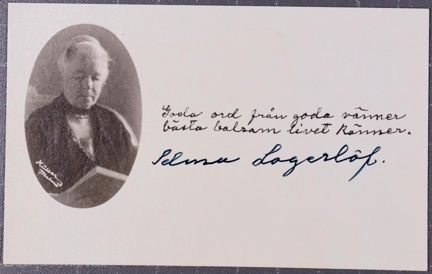 Goda ord från goda vänner
bästa balsam livet känner.
Selma Lagerlöf.